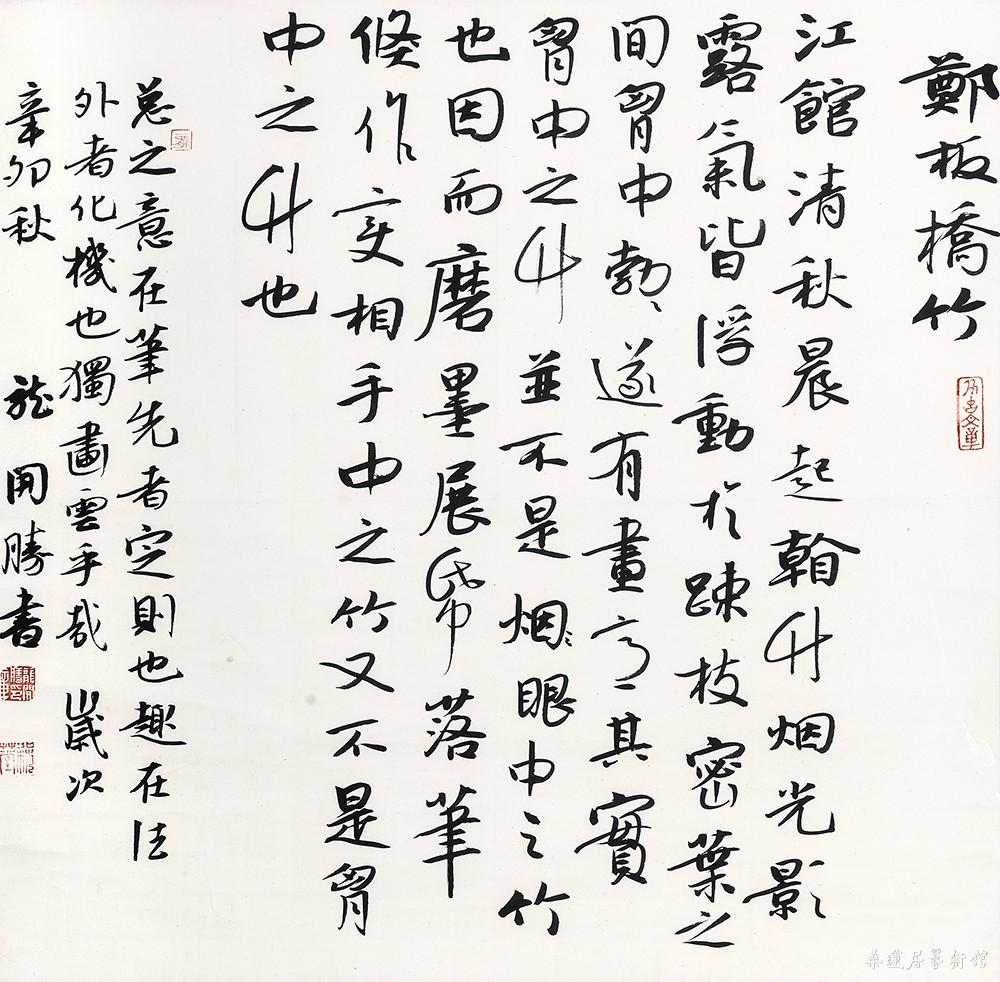 鄭板橋竹
江館清秋晨起翰竹烟光影〻
露氣皆浮動於疎枝密葉之
間胷中勃〻遂有畫意其實
胷中之竹並不是烟〻眼中之竹
也因而磨墨展帋落筆
倏作变相手中之竹又不是胷
中之竹也
总之意在筆先者定則也趣在法
外者化機也獨畫雲乎哉 歲次
辛卯秋 龍開勝書
桑蓮居藝術館